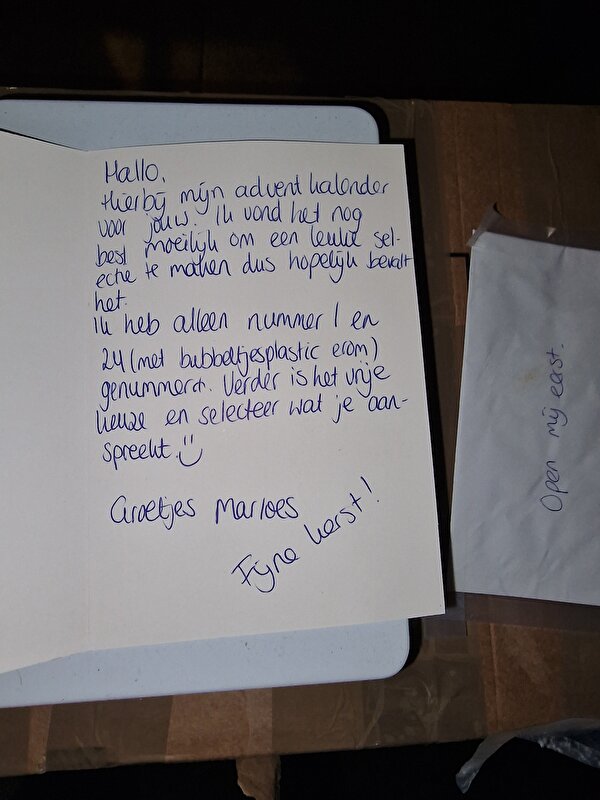 Hallo,
Hierbij mijn advent kalender
voor jouw. Ik vond het nog
best moeilijk om een leuke sel-
ectie te maken dus hopelijk bevalt
het.
Ik heb alleen nummer 1 en
24 (met bubbeltjesplastic erom)
genummerd. Verder is het vrije
keuze en selecteer wat je aan-
spreekt.
Groetjes Marloes
Fijne kerst!
Open mij eerst.